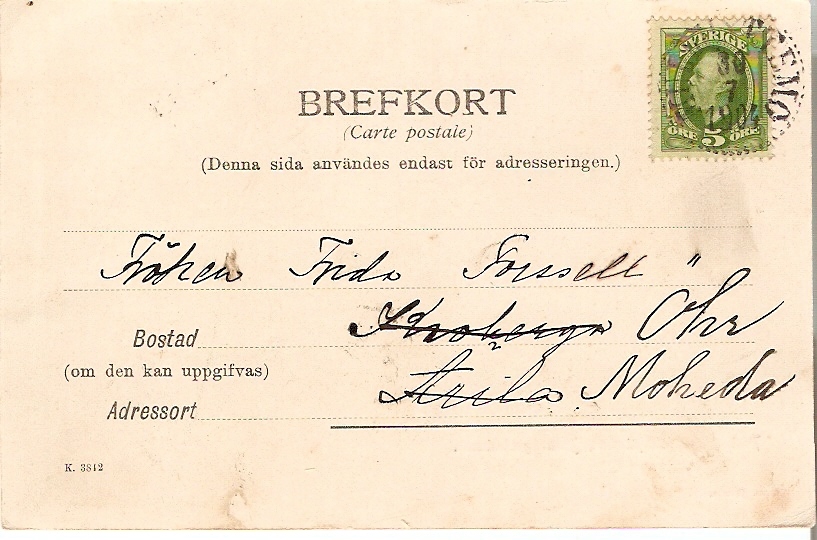 SVERIGE
30
7
1904
ÖRE 5 ÖRE
BREFKORT
(Carte postale)
(Denna sida användes endast för adresseringen.)
Fröken Frida Forssell
Bostad Öhr
(om den kan uppgifvas)
Adressort Moheda
K. 3812